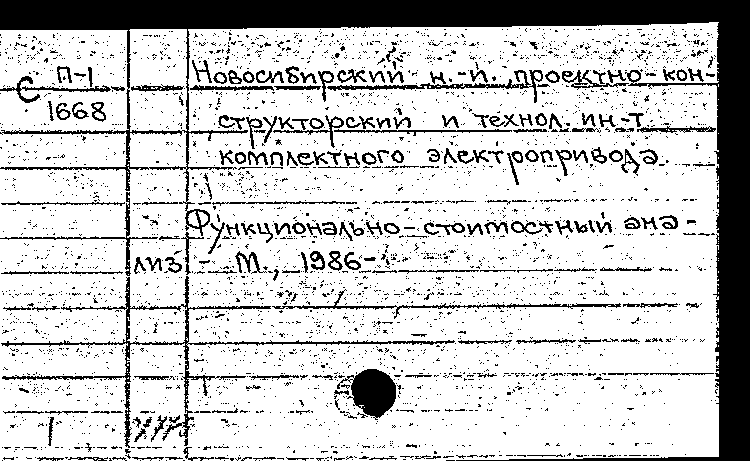 С П-1 Новосибирский н.-и., проектно-кон-
1668 структорский и технол. ин-т
комплектного электропривода.
Функционально-стоимостный ана-
лиз - М., 1986-
1